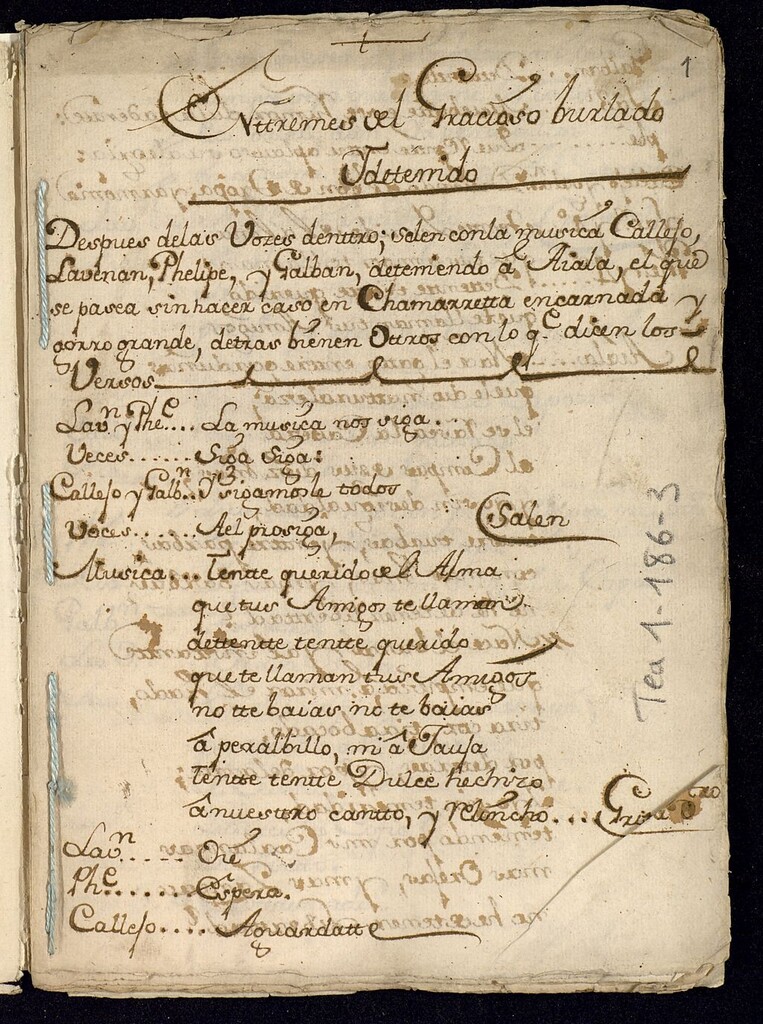 1
Entremes del Gracioso burlado
Y dettenido
Despues delas Vozes denttro; salen conla musica Callejo,
Lavenan, Phelipe, y Galban, deteniendo â Aiala, el que
se pasea sin hacer caso en Chamarretta encarnada y
gorro grande, detras bienen Ottros con lo q.e dicen los
Versos
Lav.n y Phe.... La musica nos siga.
Voces...... Siga Siga:
Callejo y Galb.n.. Y sigamosle todos
Salen
Voces...... Ael prosiga,
Musica... Tentte querido del Alma
que tus Amigos te llaman
dettentte tentte querido
que te llaman tus Amigos
no tte baias no te baias
â peralbillo, ni â Jauja
tentte tentte Dulce hechizo
â nuestro cantto, y relincho....
Lav.n..... Oie
Ph.e....... Espera.
Callejo.... Aguardatte
Tea 1-186-3